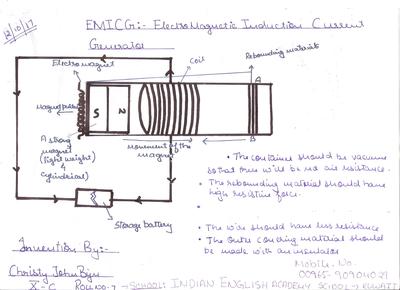 12/10/17
EMICG:- ElectroMagnetic Induction Current
Generator
Electromagnet
coil
Rebounding materials
A
Magnet pulses
S N
A strong
magnet
(light weight)
&
cylindrical)
movement of the
magnet
B
• The container should be vacuume
so that there will be no air resistance.
• The rebounding material should have
high resistive force.
Storage battery
• The wire should have less resistance
• The outer covering material should
be made with an insulator
Invention By:-
Mobile No.
Christy John Biju
X-C Roll No-7 → SCHOOL: INDIAN ENGLISH ACADEMY SCHOOL → KUWAIT